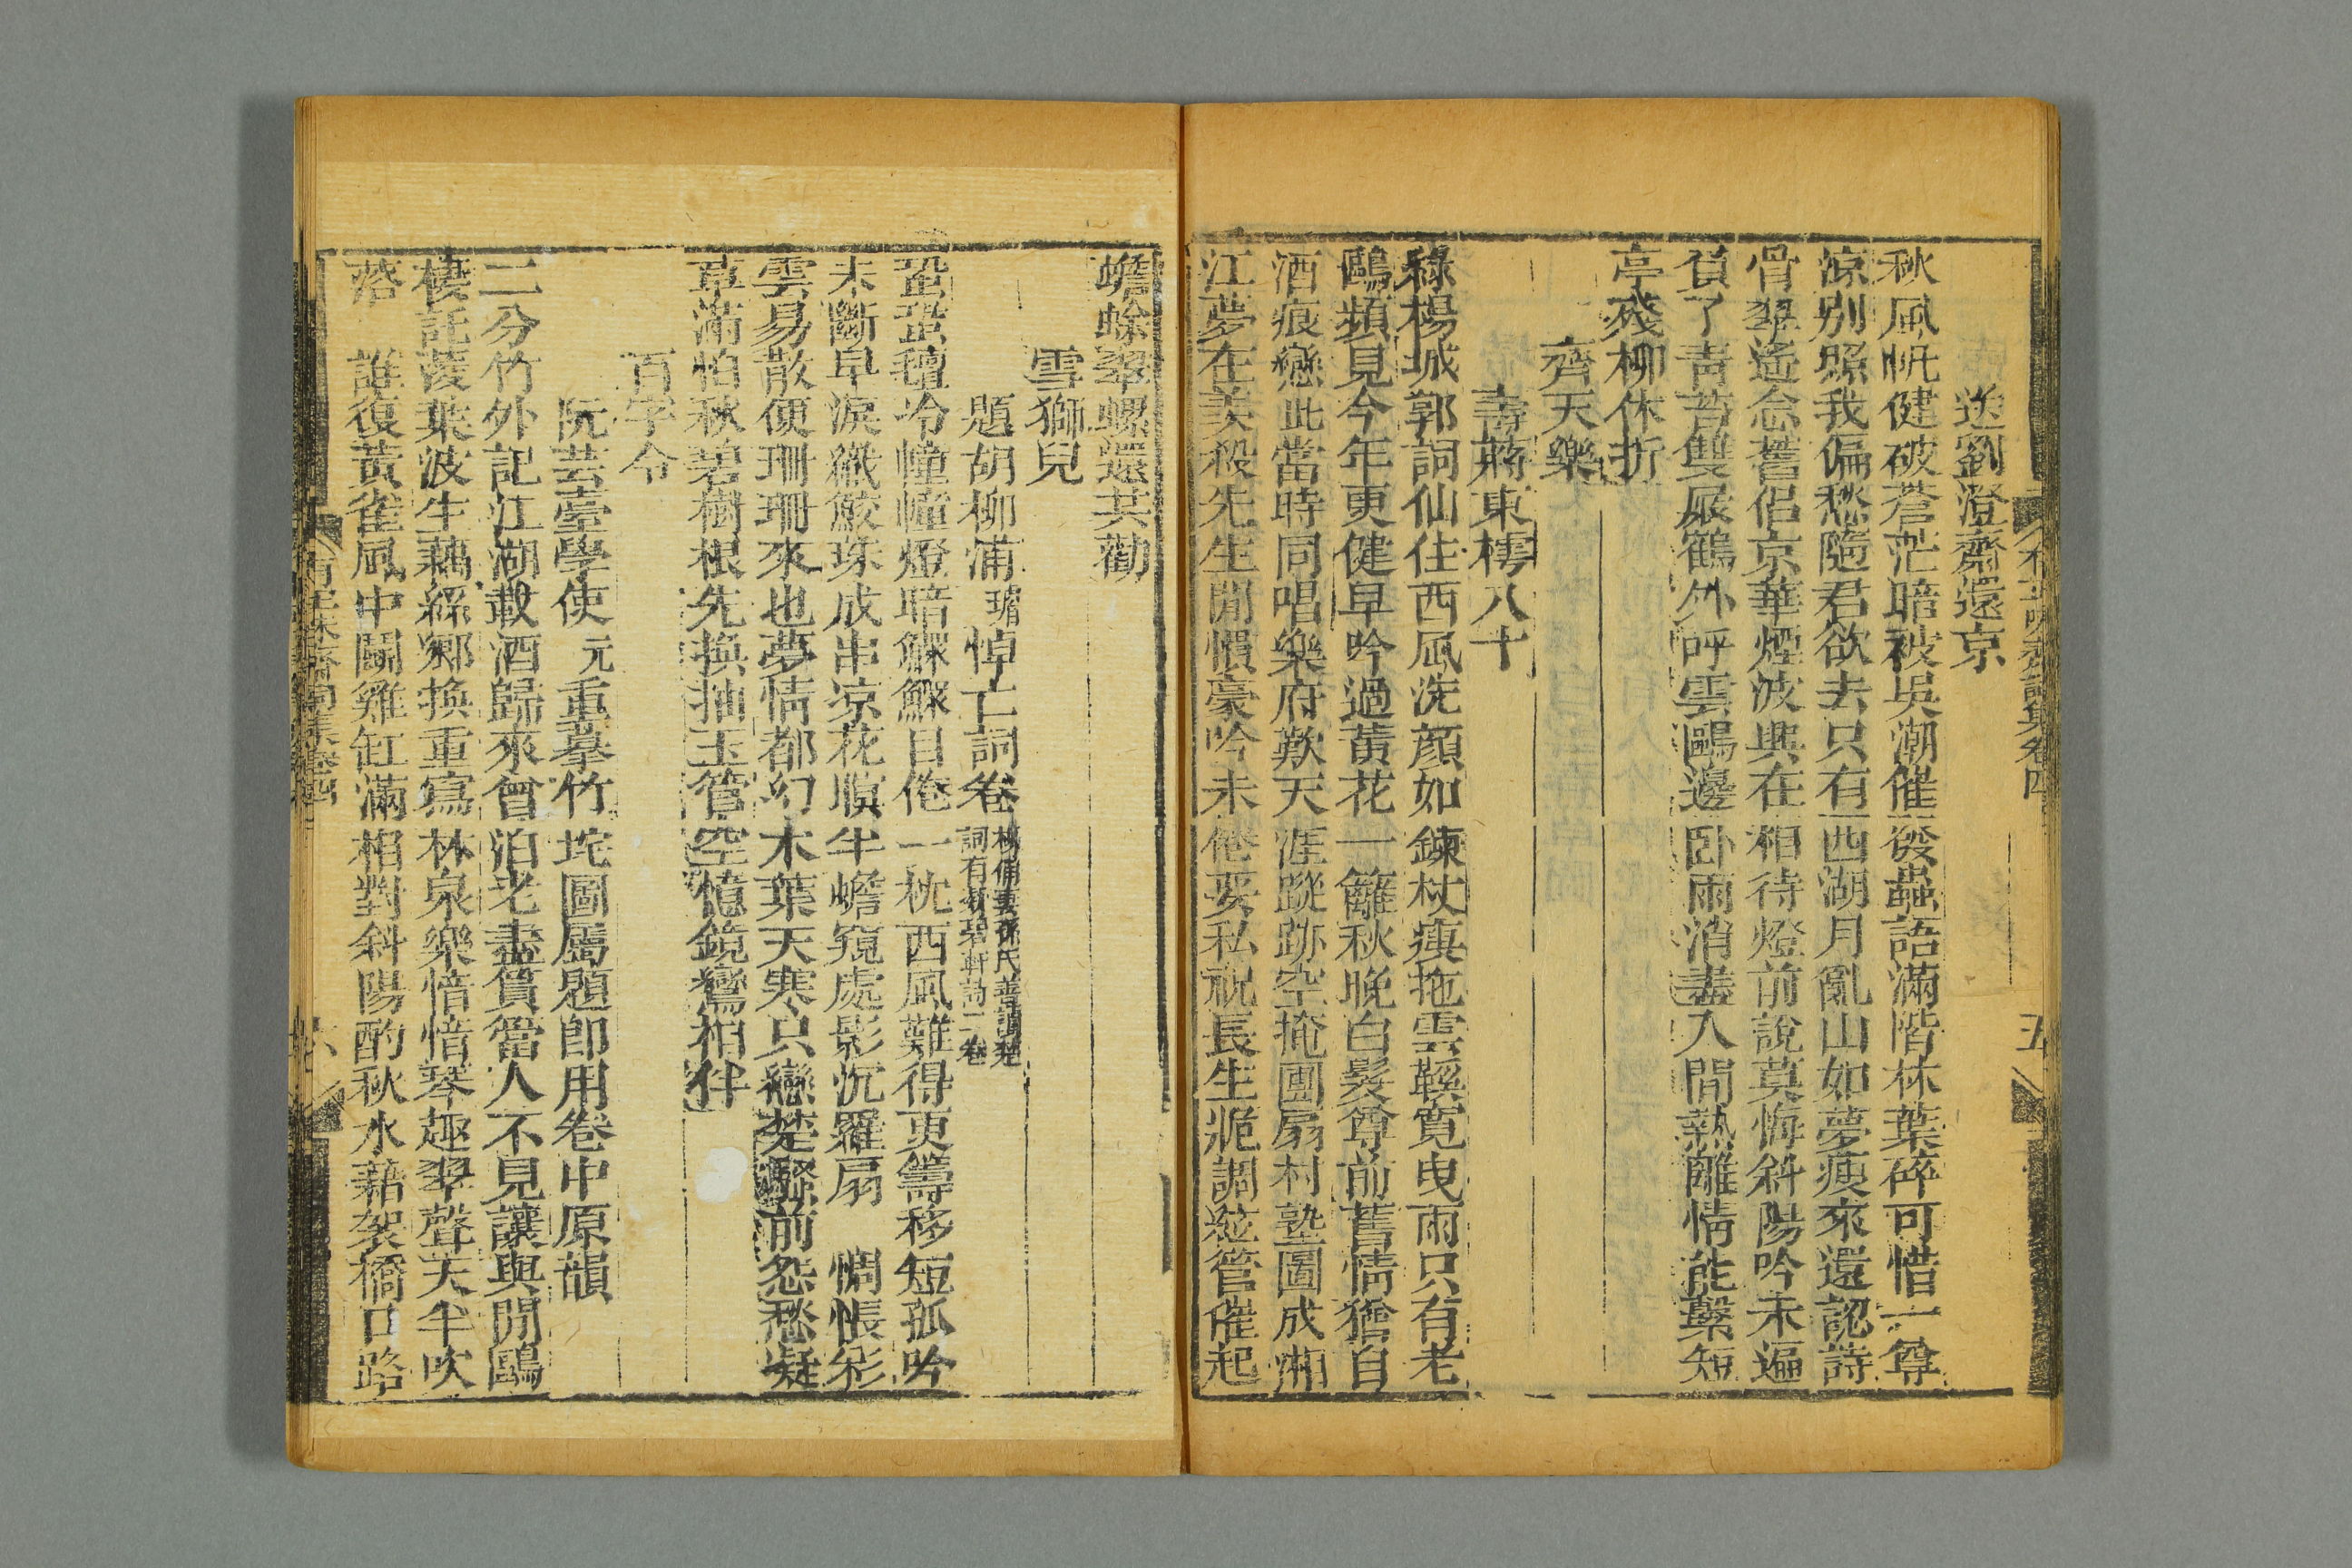 送劉澄齋還京
秋風帆健破蒼茫暗被吳潮催發蟲語滿階林葉碎可惜一尊
涼別照我偏愁隨君欲去只有西湖月亂山如夢瘐來還認詩
骨 翠遙念舊侶京華煙波興在相待燈前說莫悔斜陽吟未遍
負了青苔雙屐鶴外呼雲鷗邊臥雨消盡人間熱離情能繫短
亭殘柳休折
齊天樂
壽蔣東樗八十
綠楊城郭詞仙住西風洗顏如鍊杖瘦拖雲鞵寬曳雨只有老
鷗頻見今年更健早吟過黃花一籬秋晚白髮尊前舊情猶自
酒痕戀 此當時同唱樂府歎天涯蹤跡空掩團扇村塾圖成湘
江夢在羨殺先生閒慣豪吟未倦要私祝長生麁調絃管催起
蟾蜍翠螺還共勸
雪獅兒
題胡柳浦瑺悼亡詞卷 柳浦妻孫氏善讀楚
詞有凝碧軒詩二卷
蛩蛩氊冷幢幢燈暗鰥鰥目倦一枕西風難得更籌移短孤吟
未斷早淚織鮫珠成串涼花瞑半蟾窺處影沉羅扇 惆悵彩
雲易散便珊珊來也夢情都幻木葉天寒只戀楚騷前怨愁凝
草滿怕秋碧樹根先換抽玉管空憶鏡鸞相伴
百字令
阮芸臺學使元重摹竹垞圖屬題卽用卷中原韻
二分竹外記江湖載酒歸來曾泊老盡篔簹人不見讓與閒鷗
棲託菱葉波生藕絲鄉換重寫林泉樂愔愔琴趣翠聲天半吹
落 誰復黃雀風中鬬雞缸滿相對斜陽酌秋水藕袈橋口路